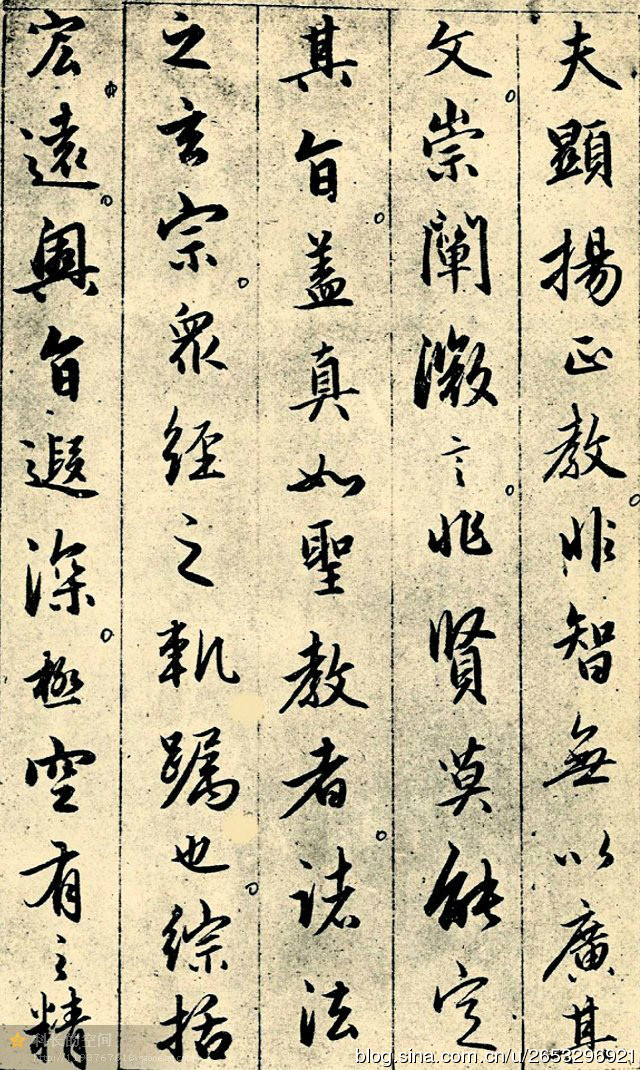 夫顯揚正教非智無以廣其
文崇闡微言非賢莫能定
其旨蓋真如聖教者諸法
之玄宗眾經之軌躅也綜括
宏遠奧旨遐深極空有之精
blog.sina.com.cn/u/2653296921